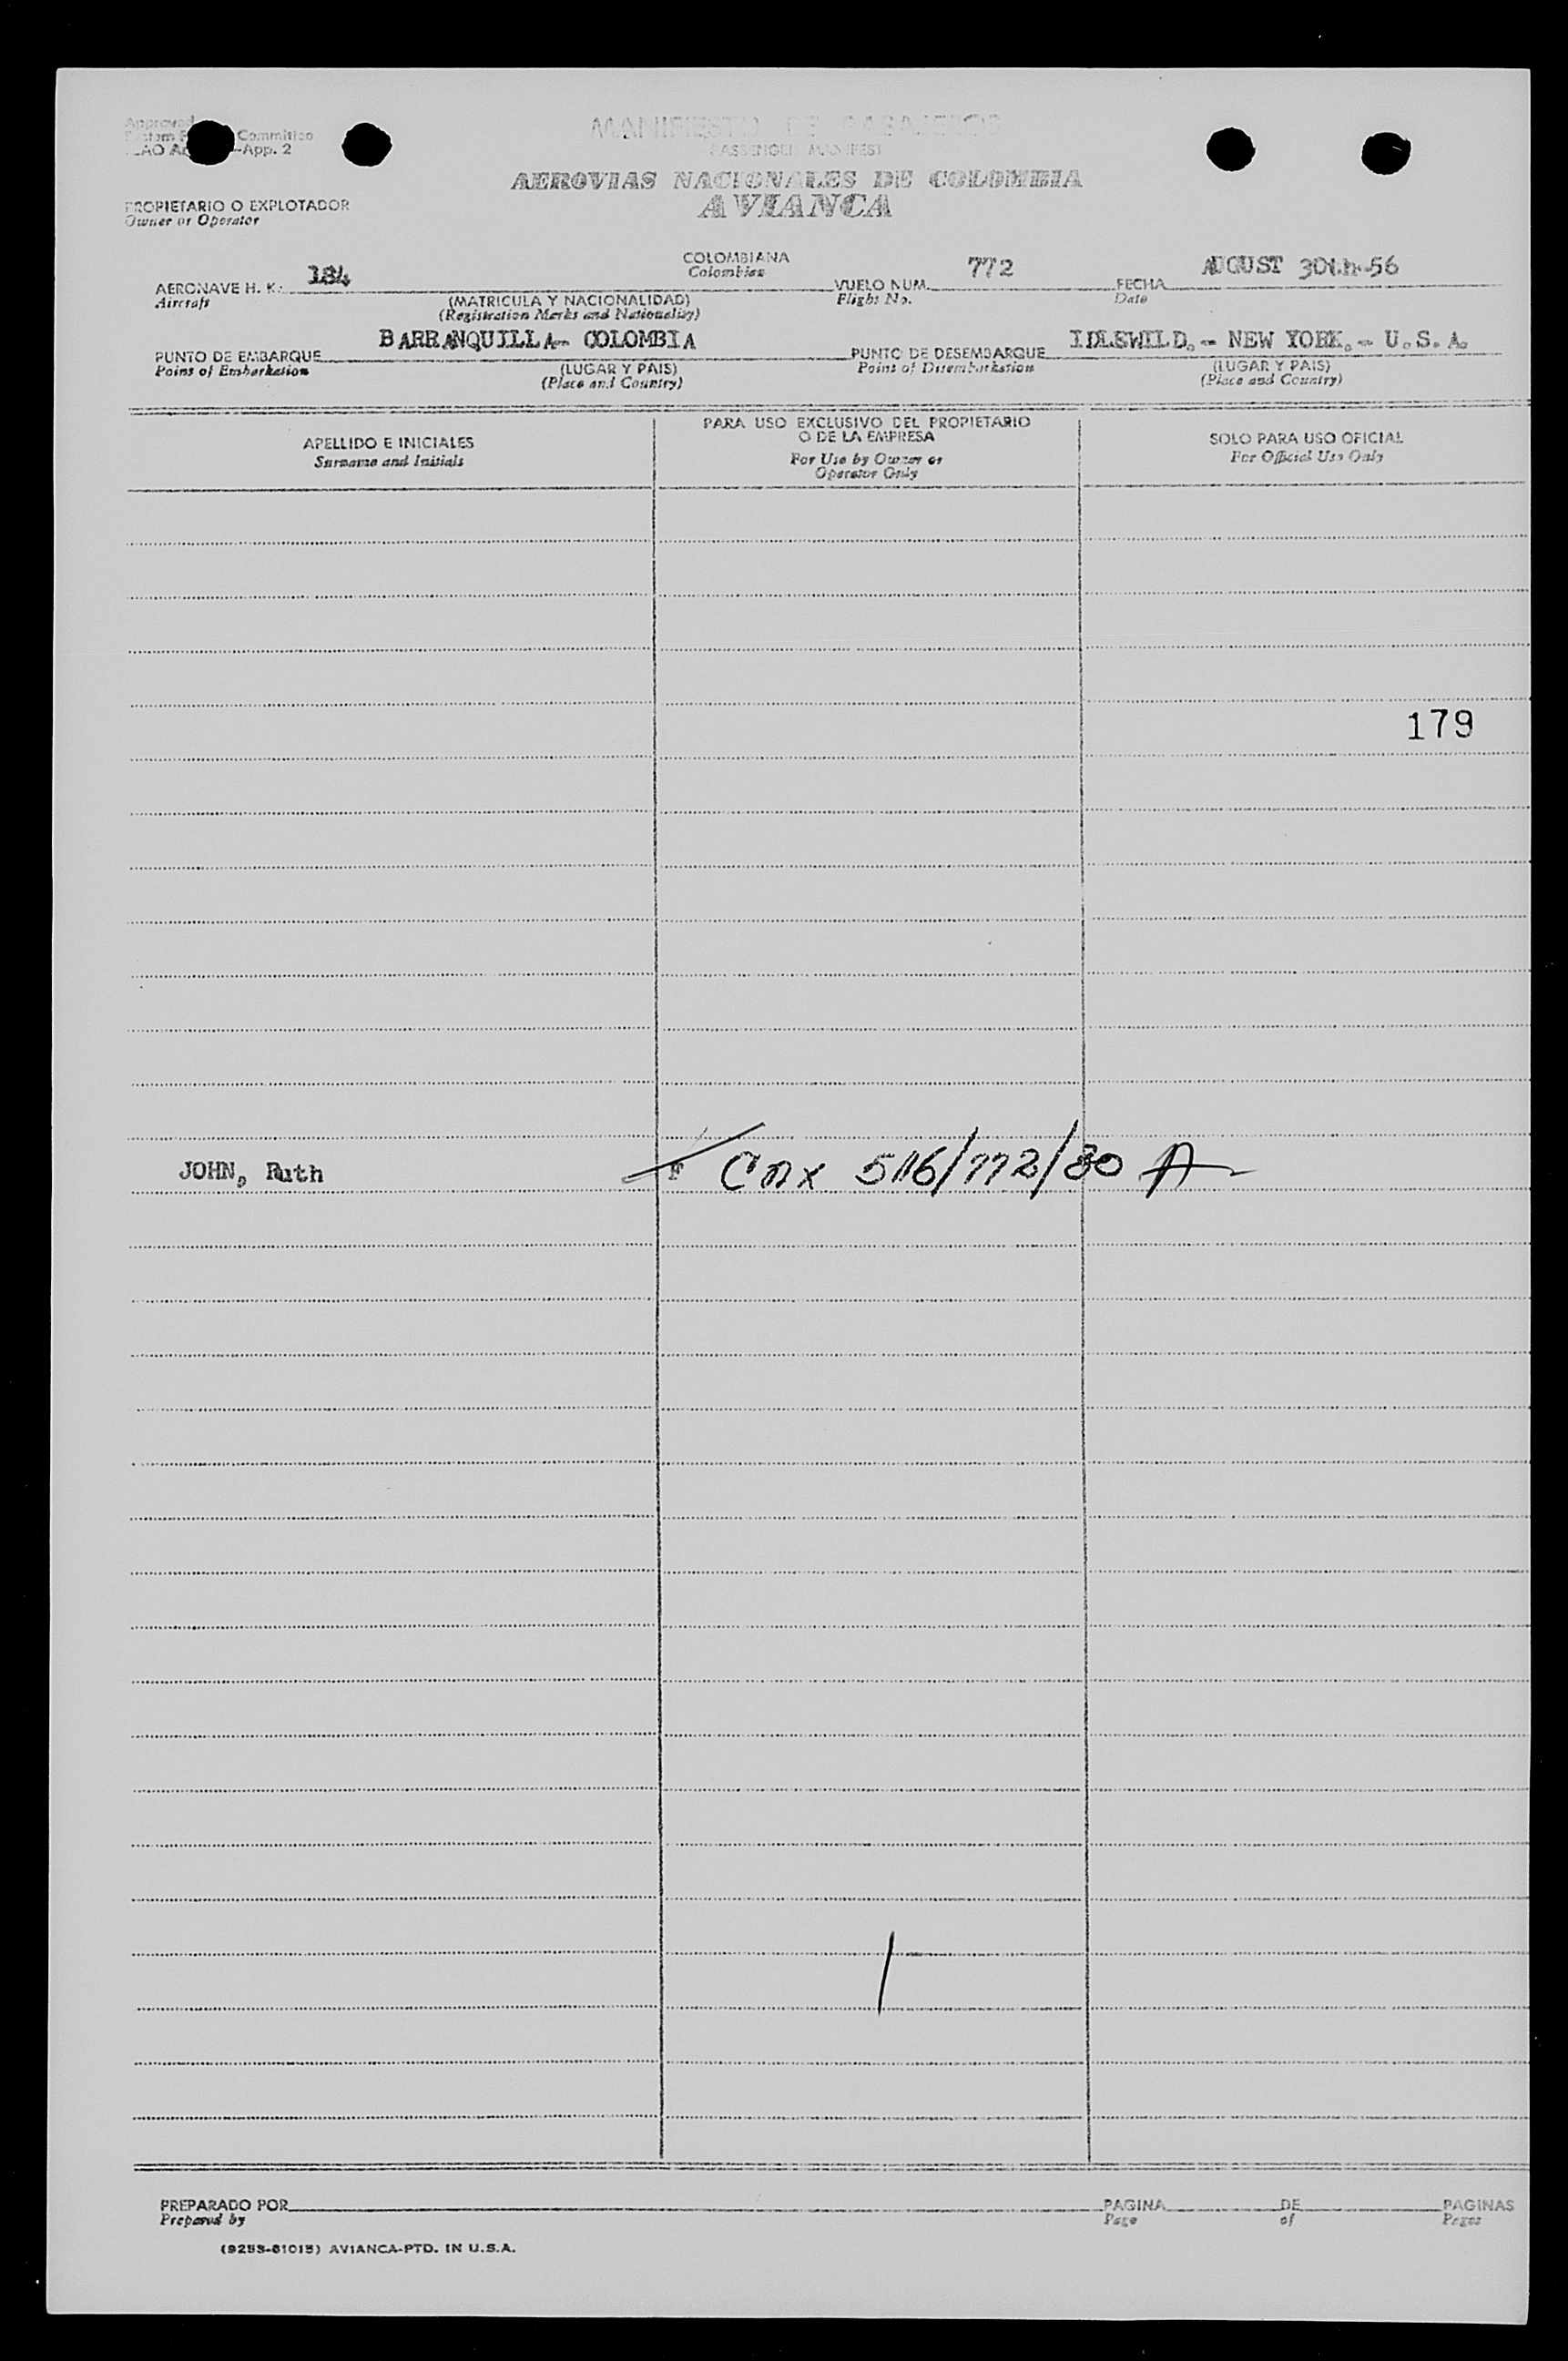 Approved
Committee
App. 2
MANIFIESTO DE PASAJEROS
PASSENGER MANIFEST
AEROVIAS NACIONALES DE COLOMBIA
AVIANCA
PROPIETARIO O EXPLOTADOR
Owner or Operator
AERONAVE H. K. 184 COLOMBIANA VUELO NUM. 772 FECHA AUGUST 30th-56
Aircraft Colombian Flight No. Date
(MATRICULA Y NACIONALIDAD)
(Registration Marks and Nationality)
PUNTO DE EMBARQUE BARRANQUILLA- COLOMBIA PUNTO DE DESEMBARQUE IDLEWILD.- NEW YORK.- U.S.A.
Point of Embarkation (LUGAR Y PAIS) Point of Disembarkation (LUGAR Y PAIS)
(Place and Country) (Place and Country)
APELLIDO E INICIALES
Surname and Initials
PARA USO EXCLUSIVO DEL PROPIETARIO
O DE LA EMPRESA
For Use by Owner or
Operator Only
SOLO PARA USO OFICIAL
For Official Use Only
179
JOHN, Ruth F Cnx 516/772/30 A
1
PREPARADO POR PAGINA DE PAGINAS
Prepared by Page of Pages
(9253-61015) AVIANCA-PTD. IN U.S.A.